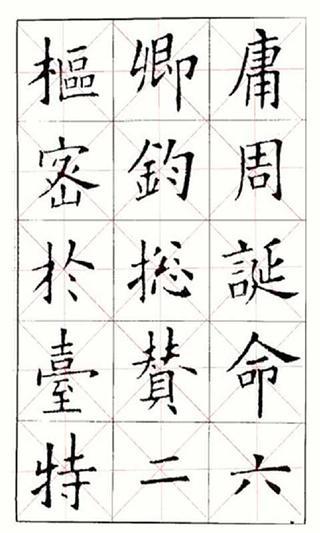 庸周誕命六
卿鈞揔賛二
樞密於臺特